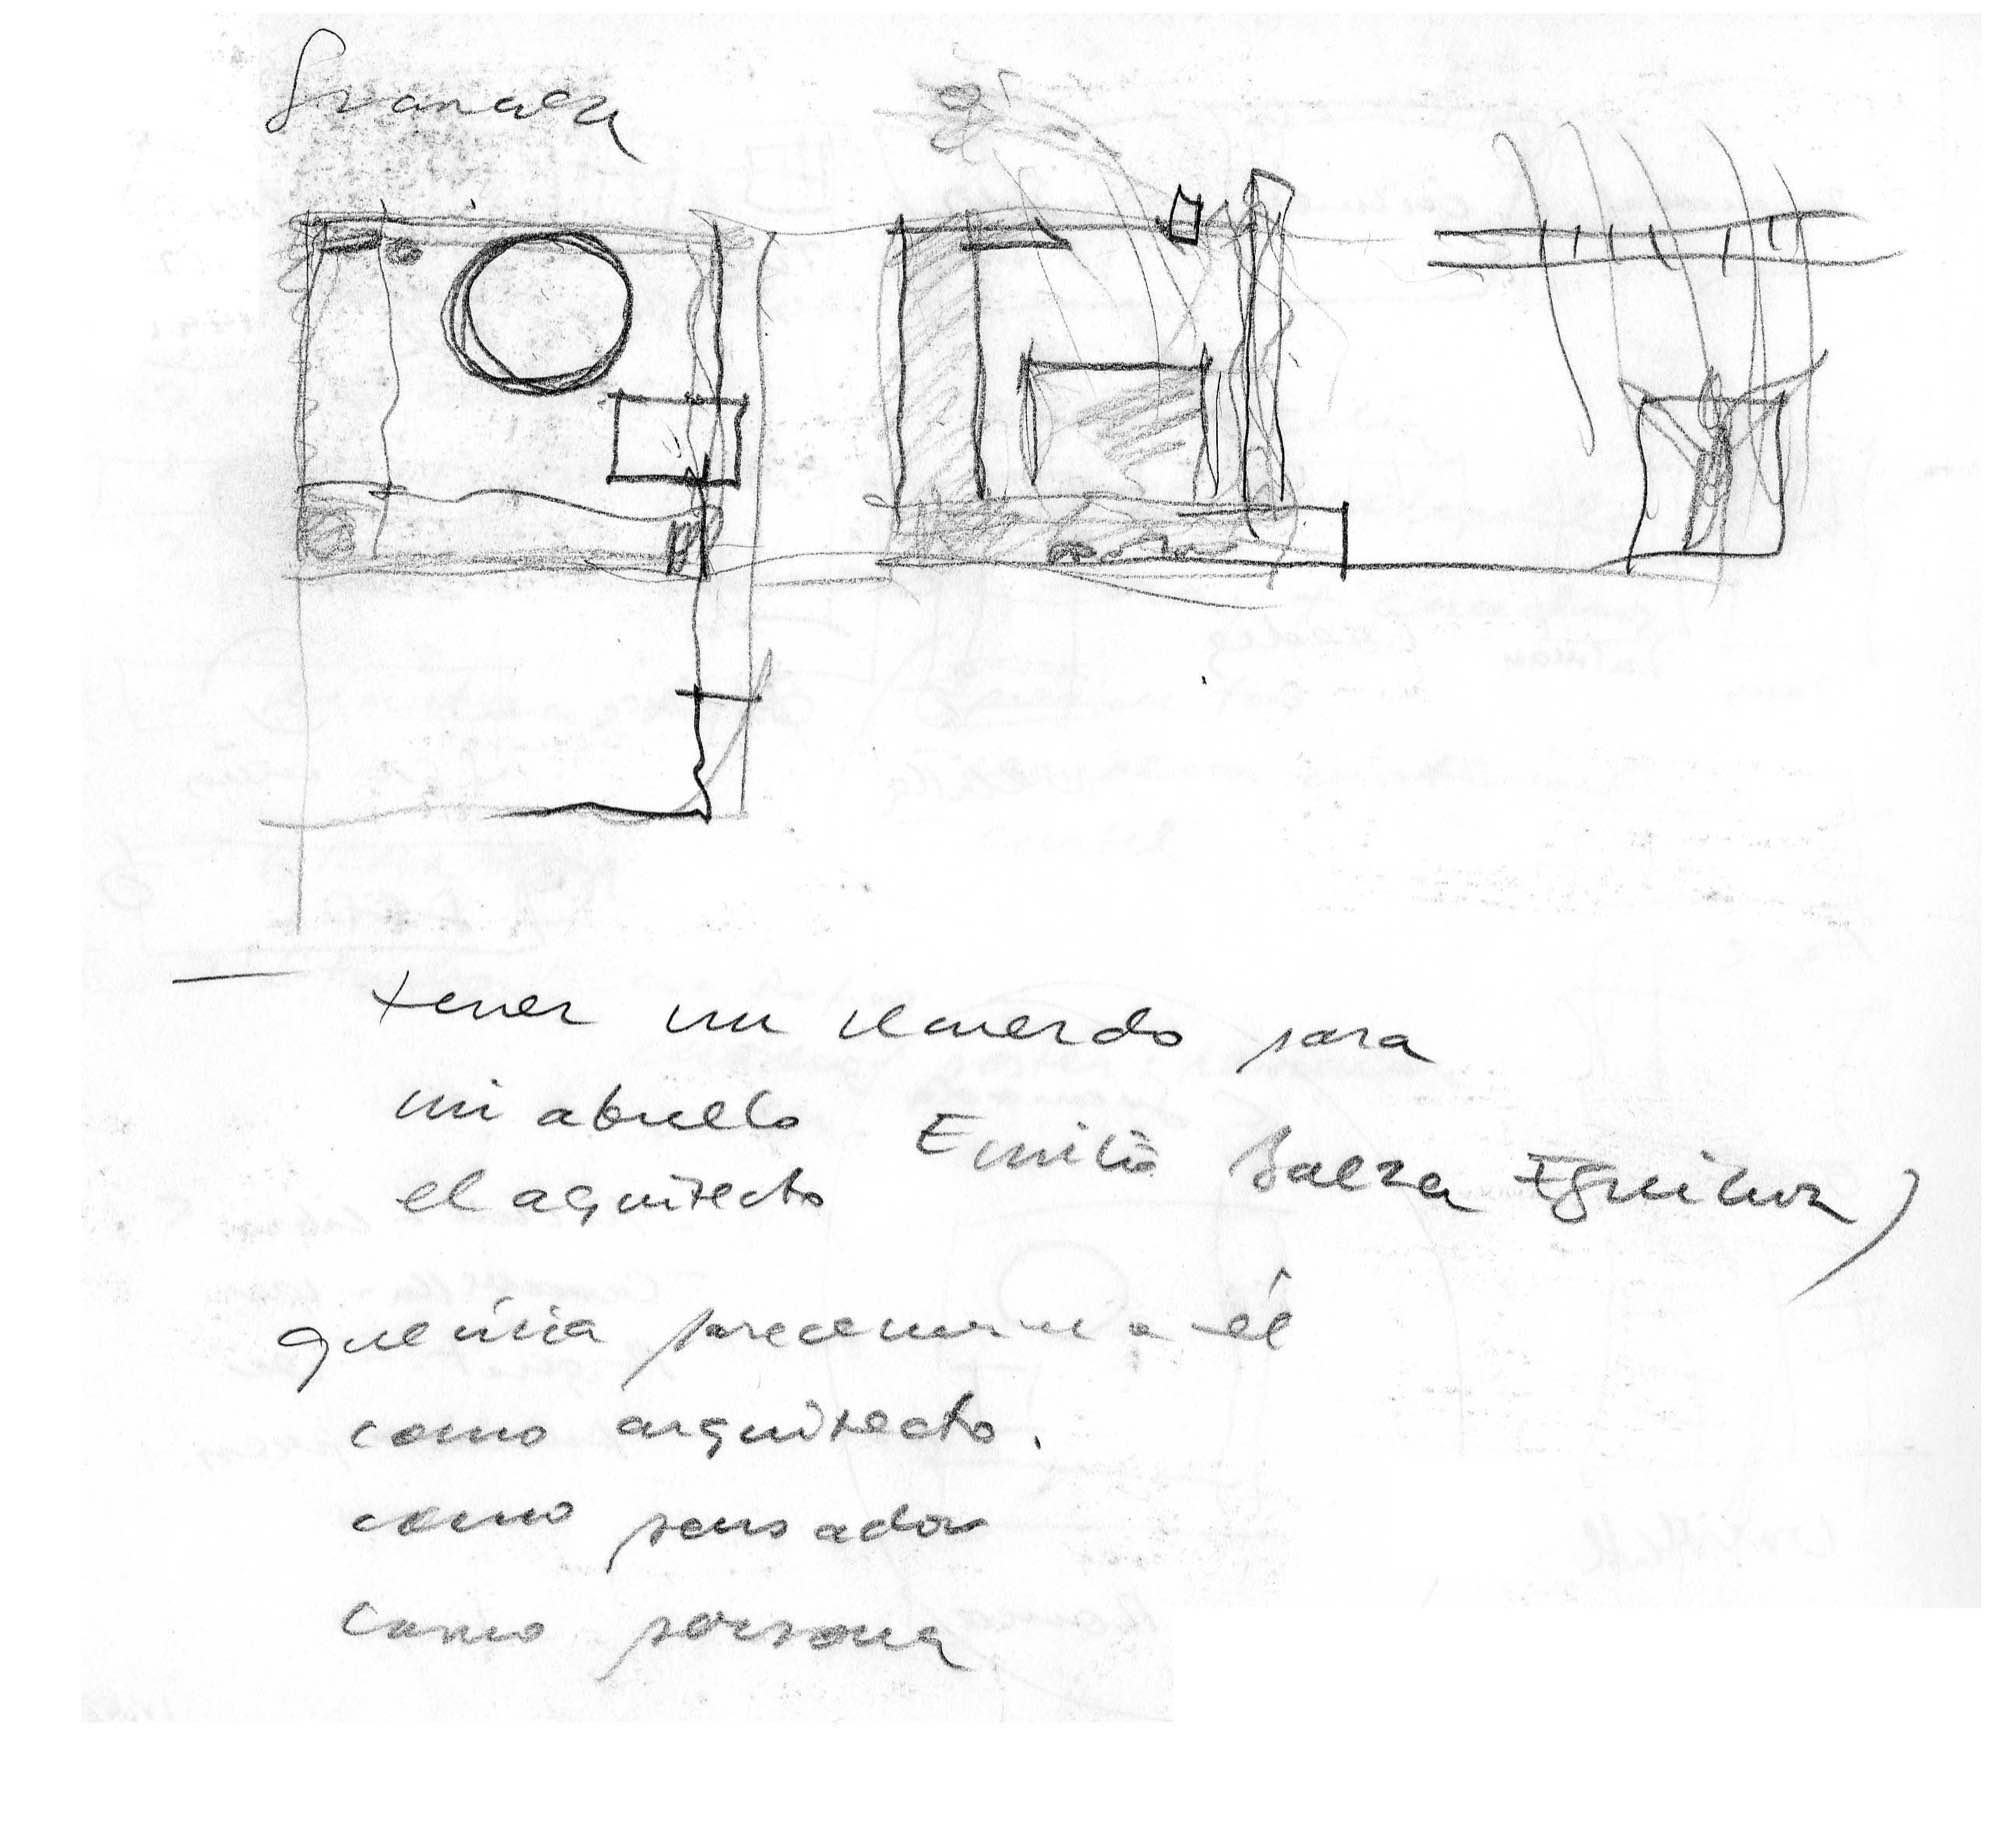 Granada
tener un recuerdo para
mi abuelo Emilio Baeza Eguiluz
el aquitecto
querria parecerme a él
como arquitecto.
como pensador
como persona